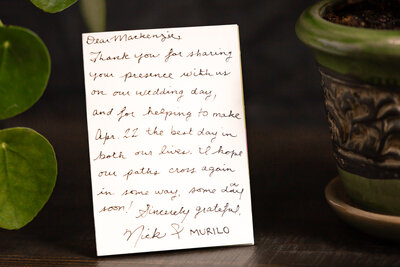 Dear Mackenzie,
Thank you for sharing
your presence with us
on our wedding day,
and for helping to make
Apr. 22 the best day in
both our lives. I'll hope
our paths cross again
in some way, some day
soon! Sincerely grateful,
Nick & MURILO